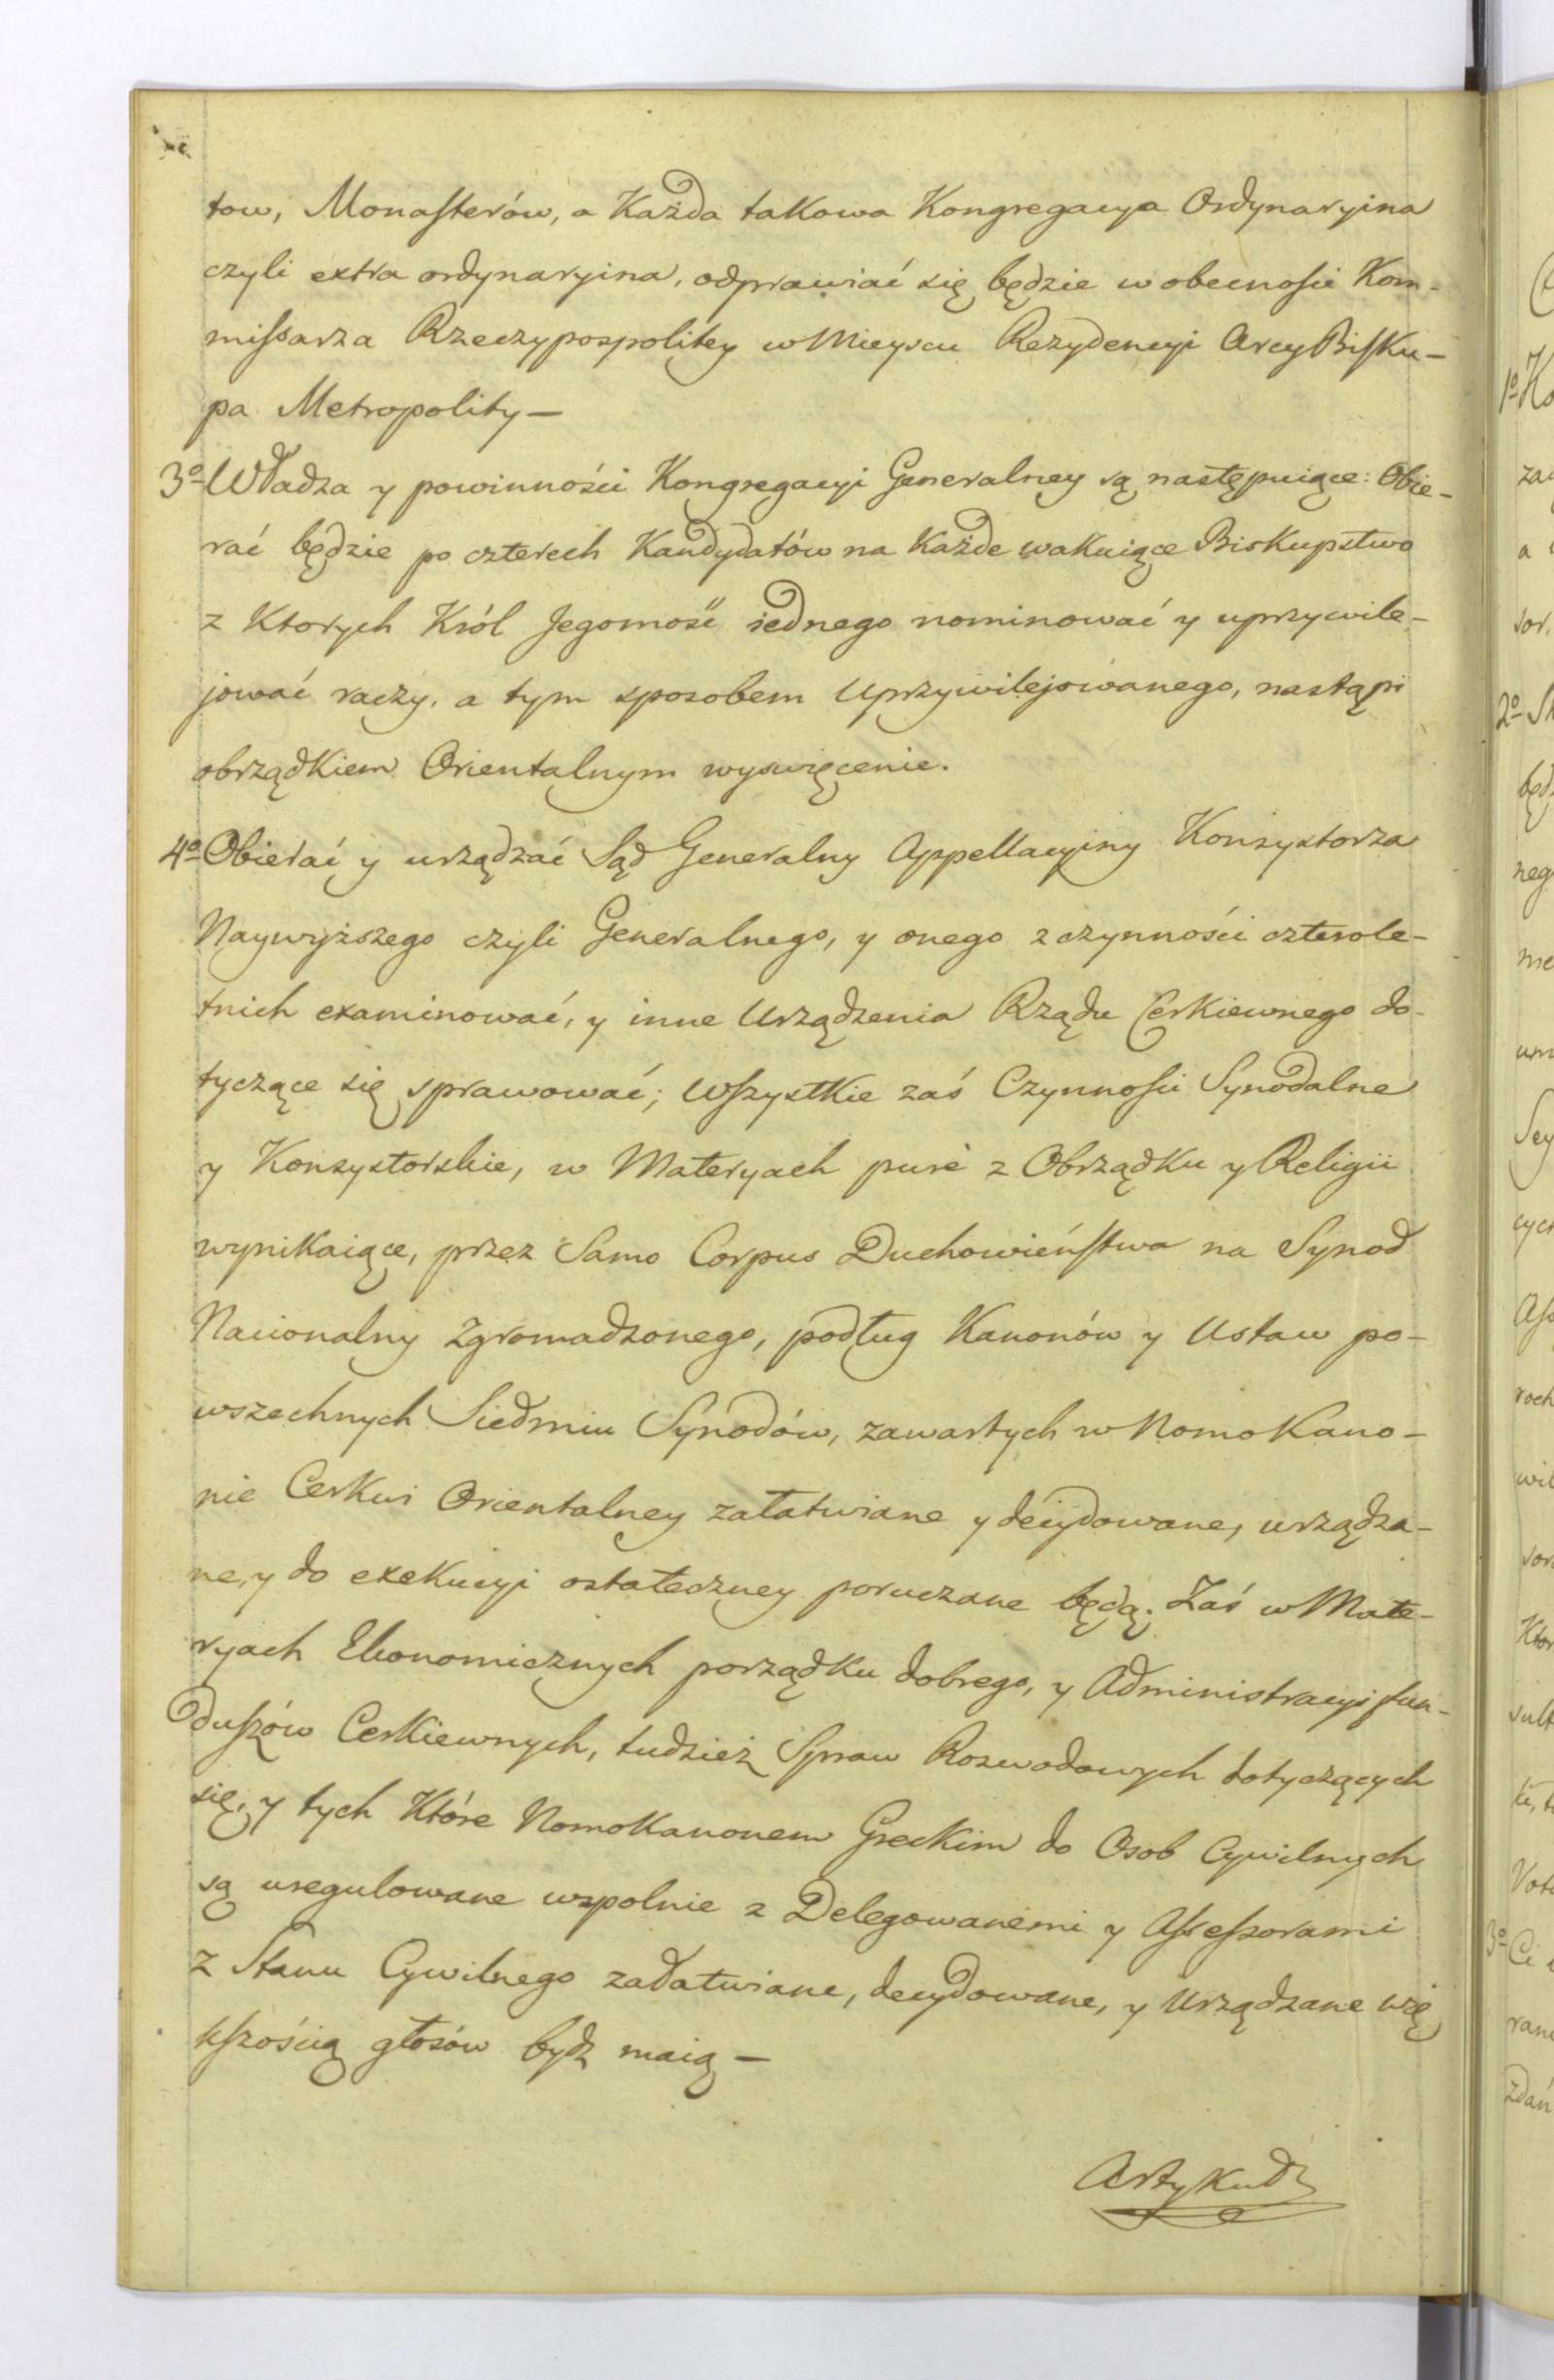 tow, Monasterów, a Każda takowa Kongregacya Ordynaryina
czyli extra ordynaryina, odprawiać się będzie w obecnosci Kom-
missarza Rzeczypospolitey w Mieyscu Rezydencyi Arcy Bisku-
pa Metropolity —
3o Władza y powinności Kongregacyi Generalney są następuiące: Obie-
rać będzie po czterech Kandydatów na Każde wakuiące Biskupstwo
z Ktorych Król Jegomość iednego nominować y uprzywile-
jować raczy, a tym sposobem Uprzywilejowanego, nastąpi
obrządkiem Orientalnym wyswięcenie.
4o Obierać y urządzać Sąd Generalny Appellacyiny Konsystorza
Naywyższego czyli Generalnego, y onego z czynności czterole-
tnich examinować, y inne Urządzenia Rządu Cerkiewnego do-
tyczące się sprawować; Wszystkie zaś Czynności Synodalne
y Konsystorskie, w Materyach purè z Obrządku y Religii
wynikaiące, przez Samo Corpus Duchowieństwa na Synod
Nacionalny Zgromadzonego, podług Kanonów y Ustaw po-
wszechnych Siedmiu Synodów, zawartych w NomoKano-
nie Cerkwi Orientalney załatwiane y decydowane, urządza-
ne, y do exekucyi ostateczney poruczane będą; Zaś w Mate-
ryach Ekonomicznych porządku dobrego, y Administracyi fun-
duszów Cerkiewnych, tudzież Spraw Rozwodowych dotyczących
się, y tych Które NomoKanonem Greckim do Osob Cywilnych
są uregulowane wspolnie z Delegowanemi y Assessorami
z Stanu Cywilnego załatwiane, decydowane, y Urządzane wię
kszością głosów bydź maią —
Artykuł
1o Ko
a
2o
3o Ci